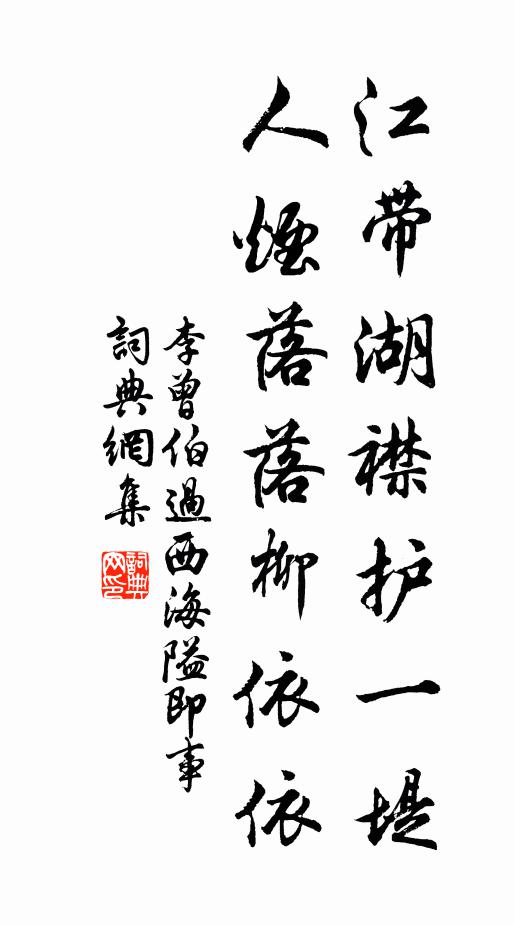 江带湖襟护一堤
人烟落落柳依依
李曾伯過西海隘即事
詞典網集
詞典网印